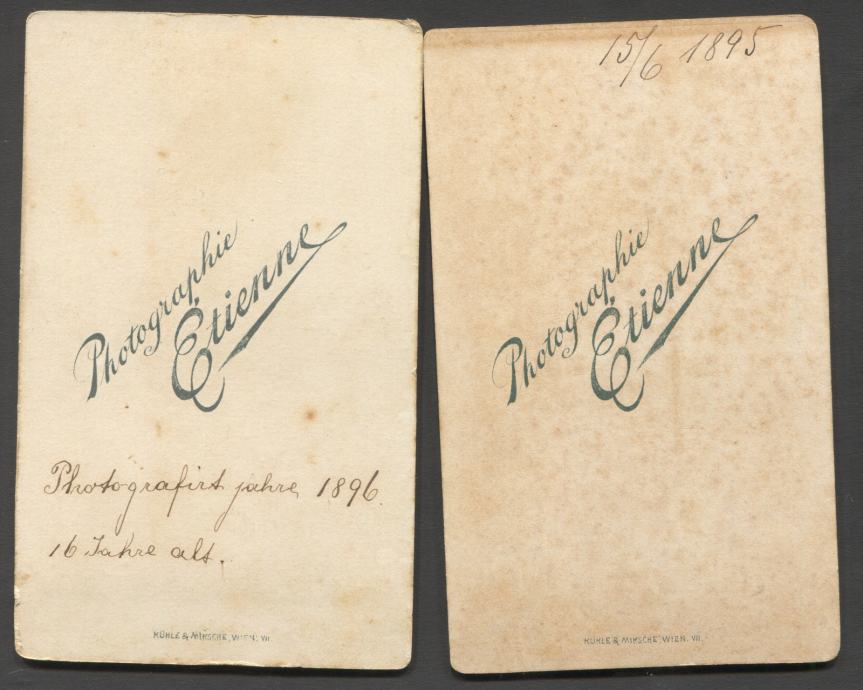 Photographie
Étienne
Photografirt jahre 1896.
16 Jahre alt.
RÜHLE & MIRSCHE, WIEN. VII
15/6 1895
Photographie
Étienne
RÜHLE & MIRSCHE, WIEN. VII.